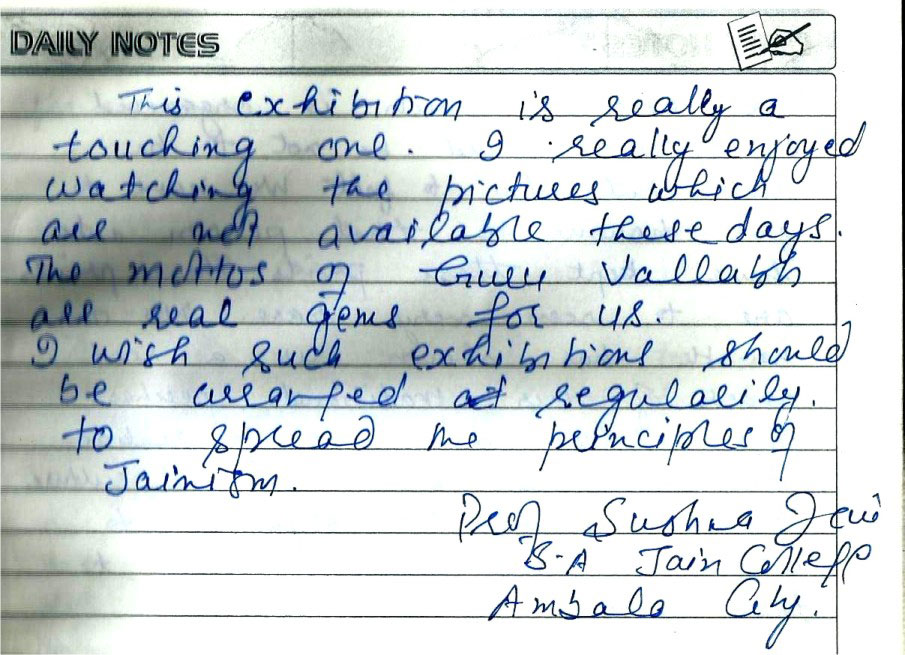 DAILY NOTES
This exhibition is really a
touching one. I really enjoyed
watching the pictures which
are not available these days.
The mottos of Guru Vallabh
are real gems for us.
I wish such exhibitions should
be arranged at regularily.
to spread the principles of
Jainism.
Prof Sushma Jain
S.A Jain College
Ambala City.